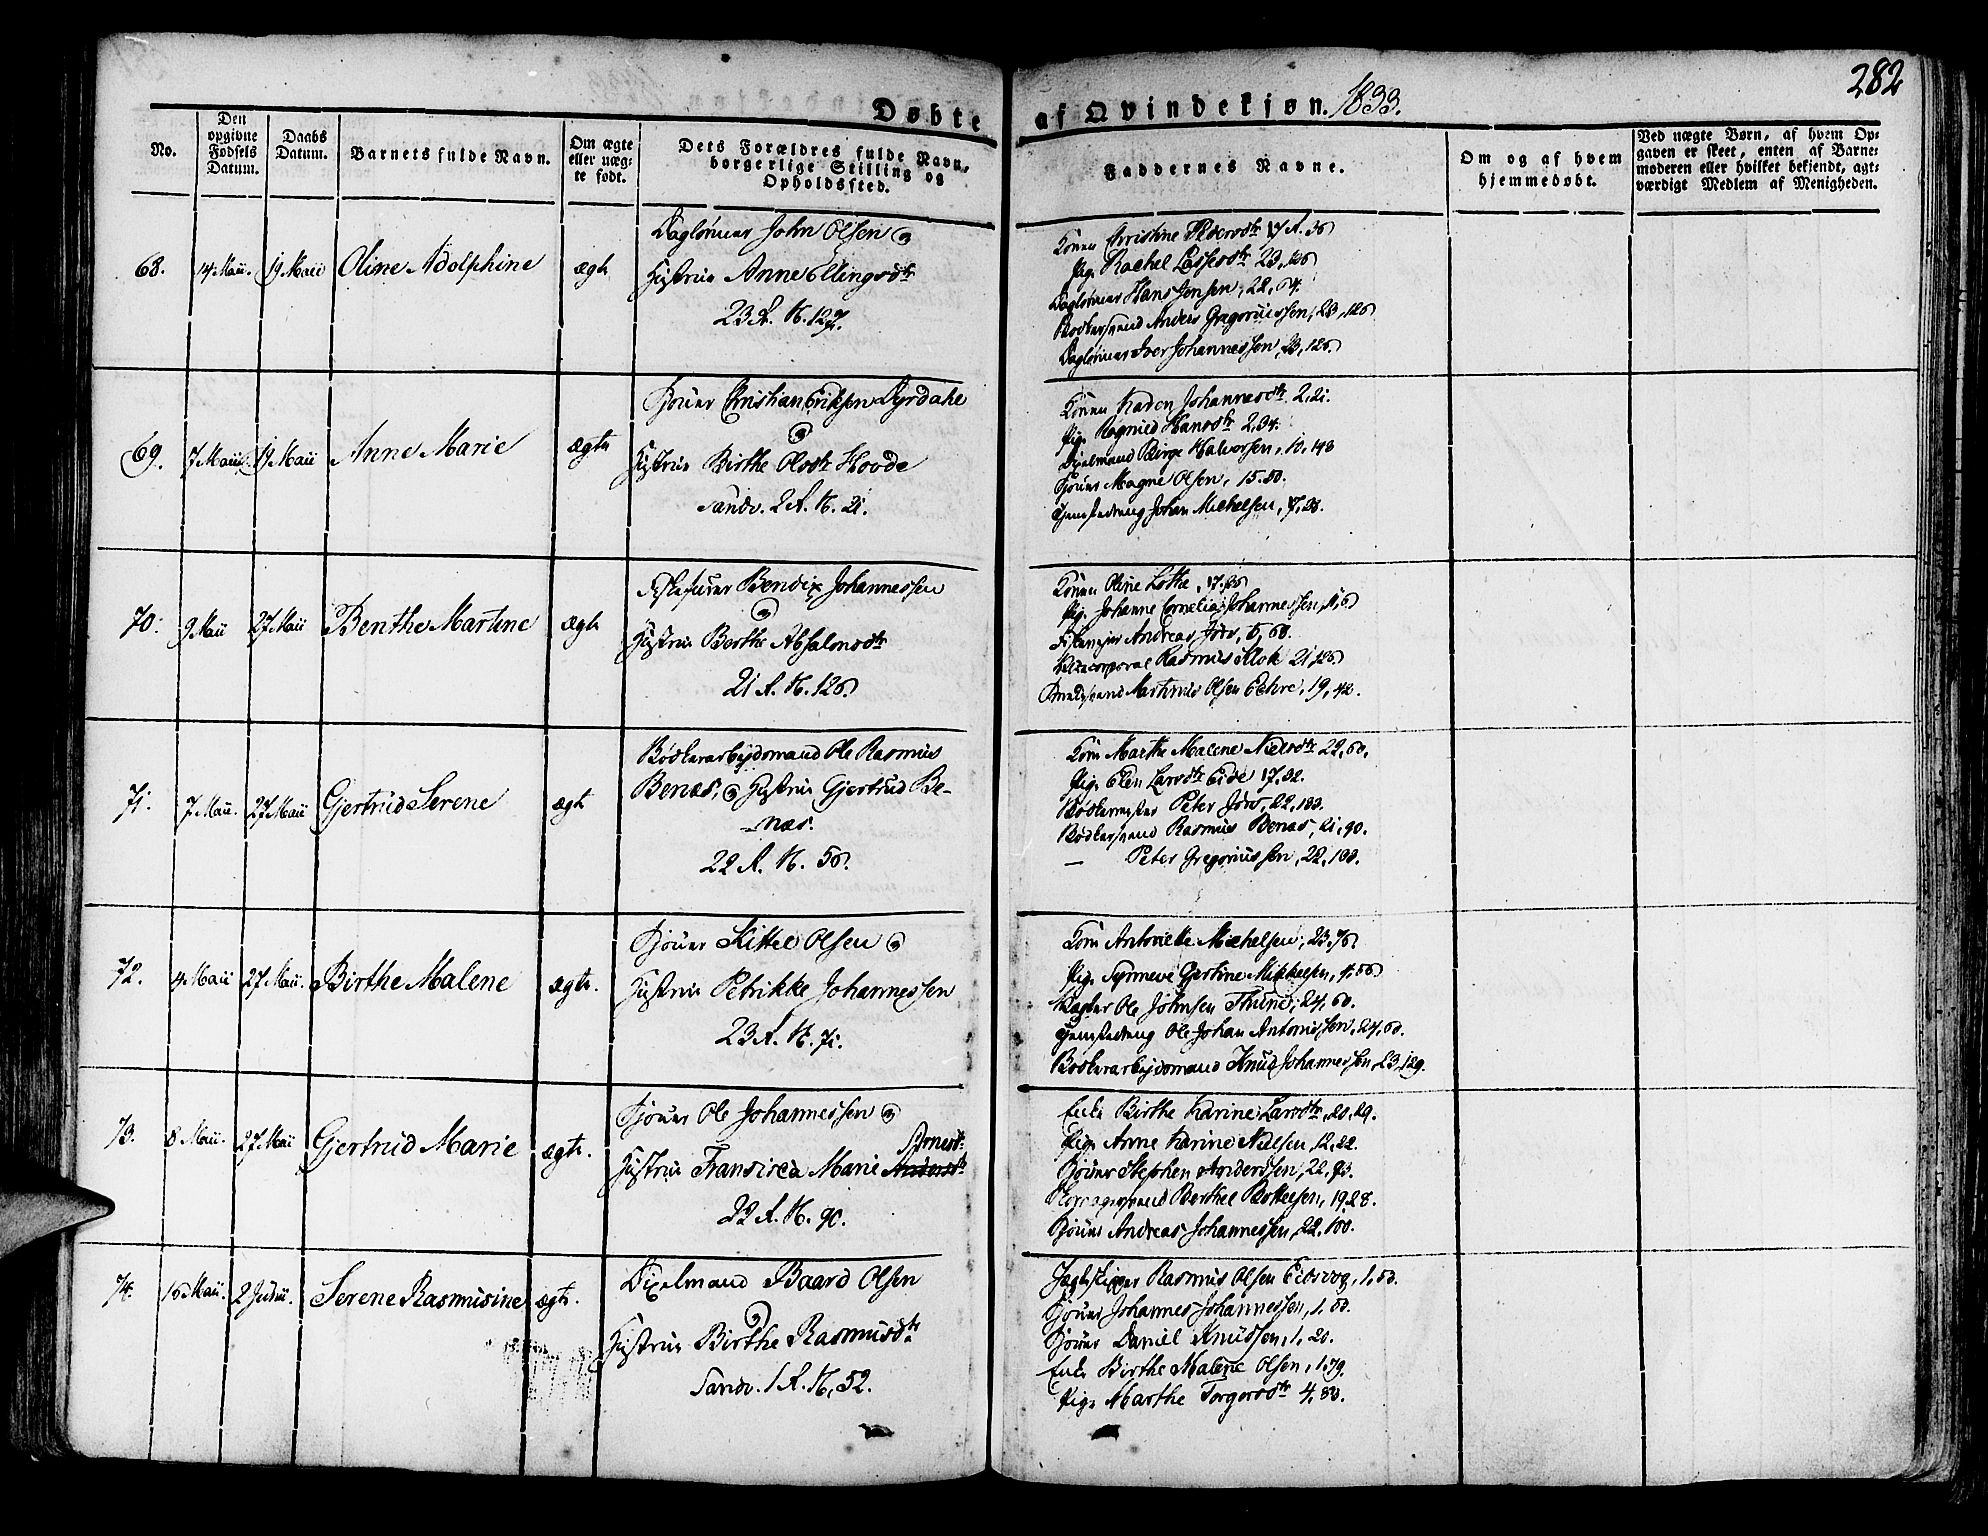 282
Døbte af Qvindekjøn. 1833.
No.
Den opgivne Fødsels Datum.
Daabs Datum.
Barnets fulde Navn.
Om ægte eller uægte født.
Dets Forældres fulde Navn, borgerlige Stilling og Opholdsted.
Faddernes Navne.
Om og af hvem hjemmedøbt.
Ved uægte Børn, af hvem Opgaven er skeet, enten af Barnemoderen eller hvilket bekjendt, agtværdigt Medlem af Menigheden.
68. 14 Maii. 19 Maii Oline Adolphine ægte
Daglønner John Olsen og
Hustrue Anne Ellingsdtr
23 A. N. 127.
Konen Christine Pedersdtr 17 A. 36
Pig. Rachel Lassesdtr 23, 126
Daglønner Hans Jensen, 22, 64.
Bødkersvend Anders Gregoriussen, 23, 126
Daglønner Iver Johannessen, 23, 126
69. 7 Maii 19 Maii Anne Marie ægte
Bjouer Christian Eriksen Dyrdahl
og
Hustrue Birthe Olsdtr Hovde
Sandv. 2 A. N. 21.
Konen Karen Johannesdtr 2, 21.
Pig. Ragnild Hansdtr 2, 34.
Dixelmand Børge Halvorsen, 10, 148
Bjouer Magne Olsen, 15. 50.
Johan Michelsen, 7, 23.
70. 9 Maii 27 Maii Benthe Martine ægte
Bendix Johannessen
og
Hustrue Berthe Absalonsdtr
21 A. N. 126
Konen Oline Lothe, 17. 26
Pig. Johanne Cornelia Johannessen, 1, 6
Andreas Jørs, 5, 68.
Rasmus Klok 21, 126
Martinus Olsen Echre, 19, 42.
71. 7 Maii. 27 Maii Gjertrud Serene ægte
Bødkerarbejdsmand Ole Rasmus
Benæs, og Hustrue Gjertrud Be-
-næs.
22 A. N. 56.
Kone Marthe Malene Nielsdtr 22, 60.
Pig. Elen Larsdtr Eide 17. 32.
Bødkermester Peter Jørs, 22, 133.
Bødkersvend Rasmus Benæs, 21, 90.
— Peter Gregoriussen, 22, 133.
72. 4 Maii 27 Maii. Birthe Malene ægte.
Bjouer Kittel Olsen og
Hustrue Petrikke Johannessen
23 A. N. 71.
Kone Antonette Michelsen, 23, 76
Pig. Synneve Gjertine Mikkelsen, 4. 56
Ole Johnsen Thune, 24, 60.
Ole Johan Antonissen, 24, 60.
Bødkerarbejdsmand Knud Johannessen, 23, 129.
73. 8 Maii. 27 Maii Gjertrud Marie ægte.
Bjouer Ole Johannessen og
Hustrue Fransisca Marie
22 A. N. 90.
Enke Birthe Karine Larsdtr, 20, 29.
Pig. Anne Karine Nielsen, 12, 22.
Bjouer Stephen Anderssen, 22, 93.
Berthel Bottelsen, 19. 28.
Bjouer Andreas Johannessen, 22, 100.
74. 16 Maii. 2 Junii. Serene Rasmusine ægte.
Dixelmand Baard Olsen
og
Hustrue Birthe Rasmusdtr
Sandv. 1 A. N. 52.
Jagteskipper Rasmus Olsen Eidsvog, 1, 50.
Bjouer Johannes Johannessen, 1. 50.
Bjouer Daniel Knudsen, 1, 20.
Enke Birthe Malene Olsen, 1. 79.
Pige Marthe Torgersdtr 4, 83.